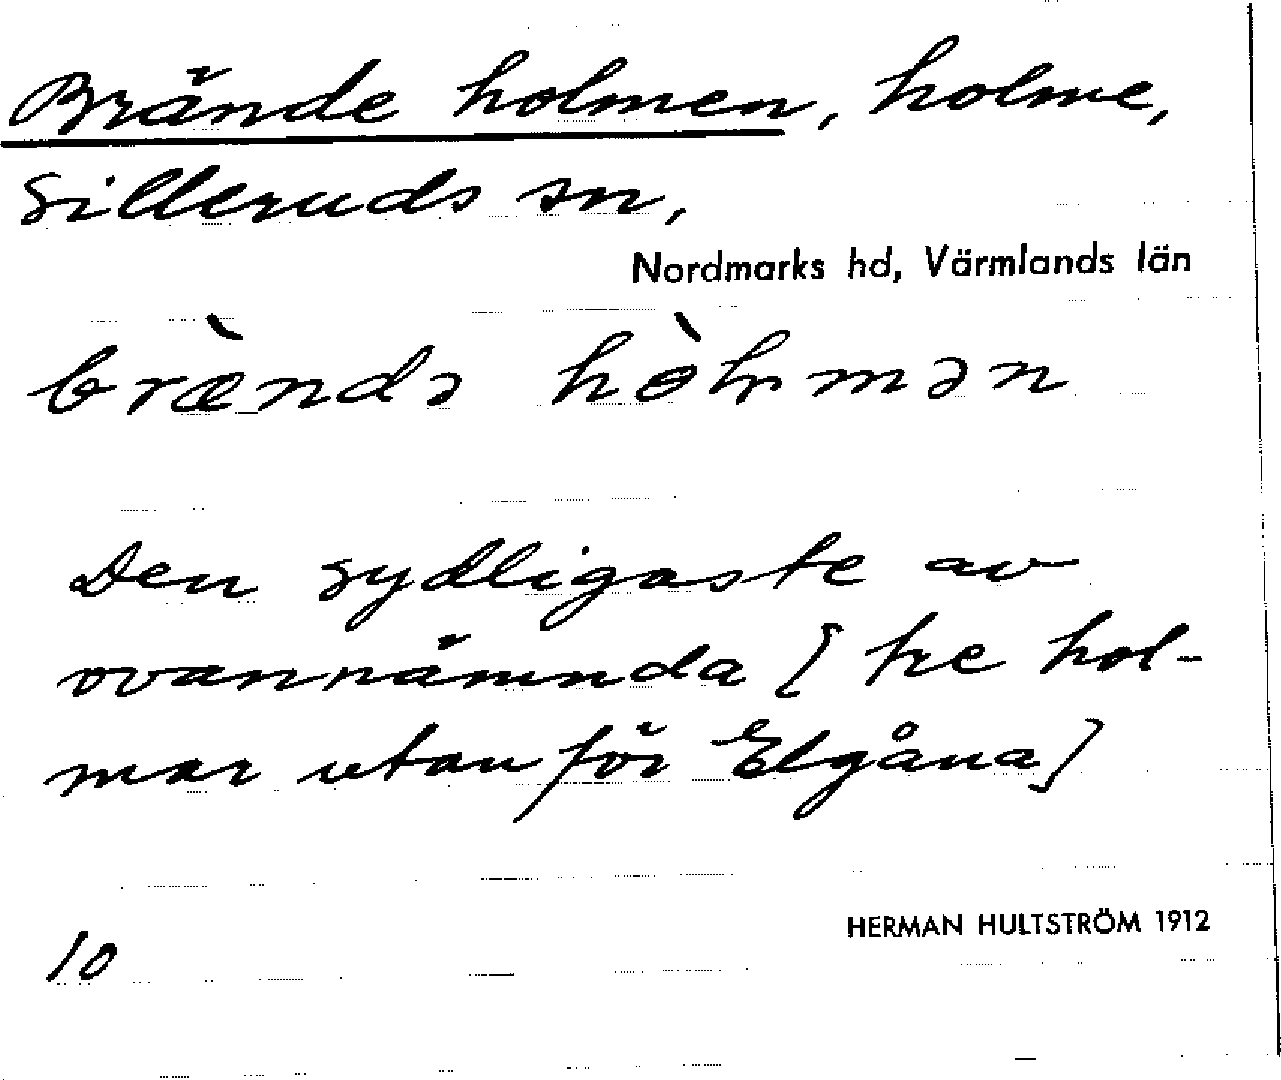 Brände holmen, holme,
Silleruds sn,
Nordmarks hd, Värmlands län
bræ̀ndə hòlmən
Den sydligaste av
ovannämnda [tre hol-
mar utanför Elgåna]
HERMAN HULTSTRÖM 1912
10